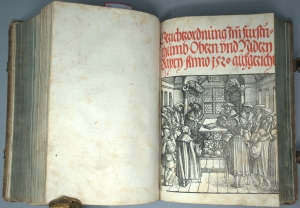 Gerichtzordnung Im fürsti-
thumb Obern vnd Nidern
Bayrn Anno 1520 aufgericht